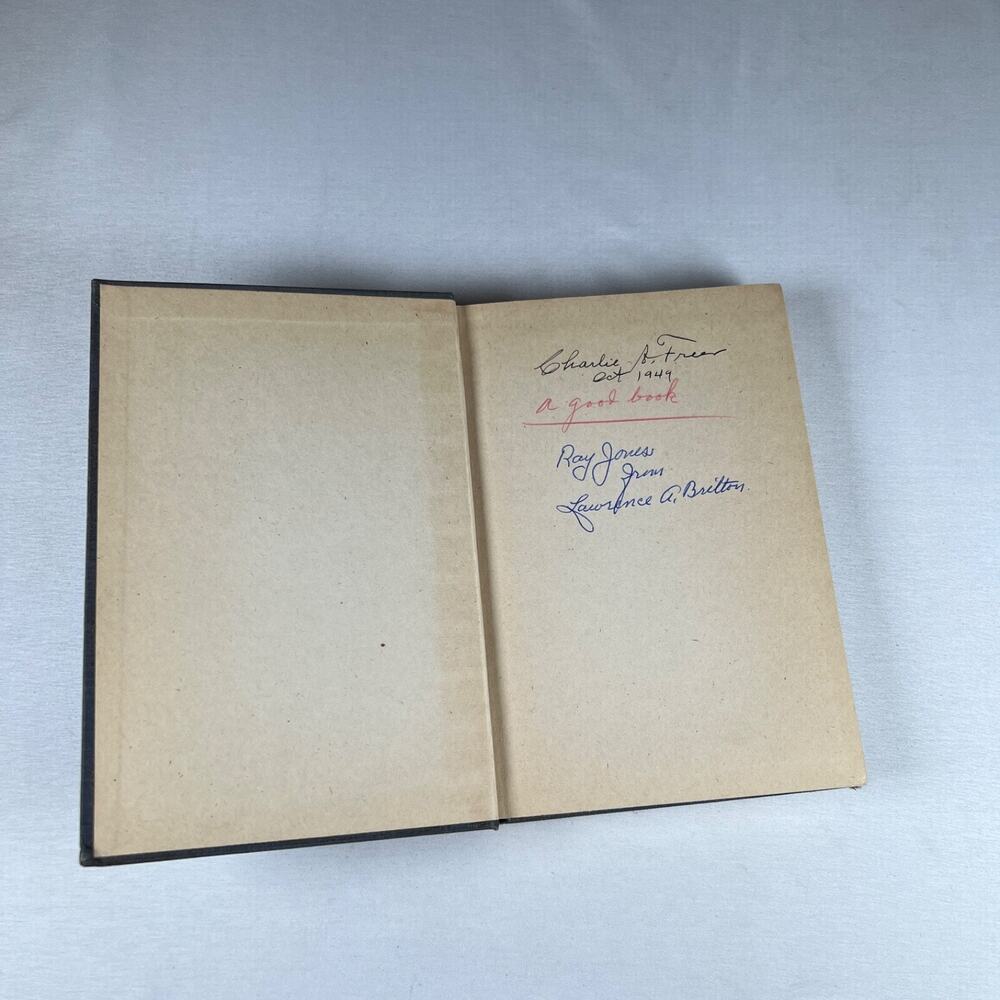 Charlie A. Freer
Oct 1949
a good book
Ray Jones
from
Lawrence A. Britton.